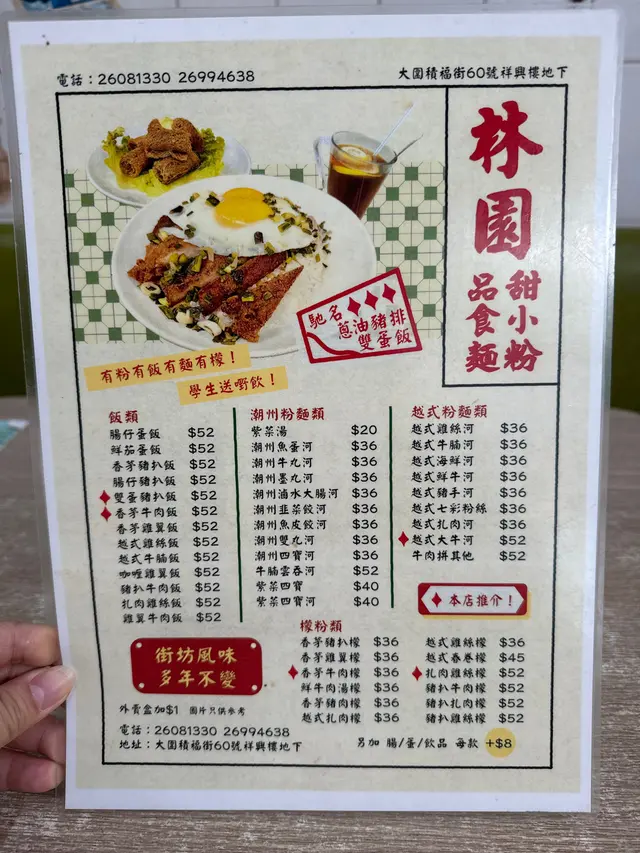 電話：26081330 26994638
大圍積福街60號祥興樓地下
林園
甜品
小食
粉麵
馳名
蔥油豬排
雙蛋飯
有粉有飯有麵有檬！
學生送嘢飲！
飯類
腸仔蛋飯 $52
鮮茄蛋飯 $52
香茅豬扒飯 $52
腸仔豬扒飯 $52
雙蛋豬扒飯 $52
香茅牛肉飯 $52
香茅雞翼飯 $52
越式雞絲飯 $52
越式牛腩飯 $52
咖喱雞翼飯 $52
豬扒牛肉飯 $52
扎肉雞絲飯 $52
雞翼牛肉飯 $52
潮州粉麵類
紫菜湯 $20
潮州魚蛋河 $36
潮州牛丸河 $36
潮州墨丸河 $36
潮州滷水大腸河 $36
潮州韮菜餃河 $36
潮州魚皮餃河 $36
潮州雙丸河 $36
潮州四寶河 $36
牛腩雲吞河 $52
紫菜四寶 $40
紫菜四寶河 $40
越式粉麵類
越式雞絲河 $36
越式牛腩河 $36
越式海鮮河 $36
越式鮮牛河 $36
越式豬手河 $36
越式七彩粉絲 $36
越式扎肉河 $36
越式大牛河 $52
牛肉拼其他 $52
本店推介！
檬粉類
香茅豬扒檬 $36
香茅雞翼檬 $36
香茅牛肉檬 $36
鮮牛肉湯檬 $36
香茅豬肉檬 $36
越式扎肉檬 $36
越式雞絲檬 $36
越式春卷檬 $45
扎肉雞絲檬 $52
豬扒牛肉檬 $52
豬扒扎肉檬 $52
豬扒雞絲檬 $52
街坊風味
多年不變
外賣盒加$1 圖片只供參考
電話：26081330 26994638
地址：大圍積福街60號祥興樓地下
另加 腸/蛋/飲品 每款 +$8